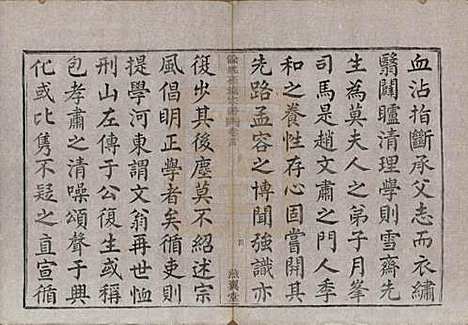 血沾指斷承父志而衣繡
翳闢臚清理學則雪齋先
生為莫夫人之弟子月峯
司馬是趙文肅之門人季
和之養性存心固嘗開其
先路孟容之博聞強識亦
復步其後塵莫不紹述宗
風倡明正學者矣循吏則
提學河東謂文翁再世維
刑山左傅于公復生或稱
包孝肅之清噪頌聲于興
化或比雋不疑之直宣循
燕翼堂